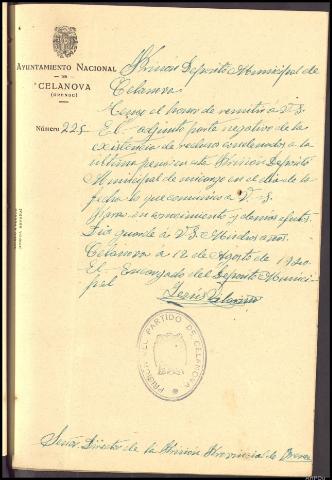 AYUNTAMIENTO NACIONAL
DE
CELANOVA
(ORENSE)
Número 225
Prision Deposito Municipal de
Celanova.
Tengo el honor de remitir a V.S.
El adjunto parte negativo de la
existencia de reclusos condenados a la
ultima pena en esta Prision Deposito
Municipal de mi cargo en el dia de la
fecha lo que comunico a V. S.
Para su conocimiento y demas efectos.
Dios guarde a V.S. Muchos anos.
Celanova a 12 de Agosto de 1940
El Encargado del Deposito Munici-
pal
Jesús
PRISIÓN DEL PARTIDO DE CELANOVA
Señor Director de la Prision Provincial de Orense